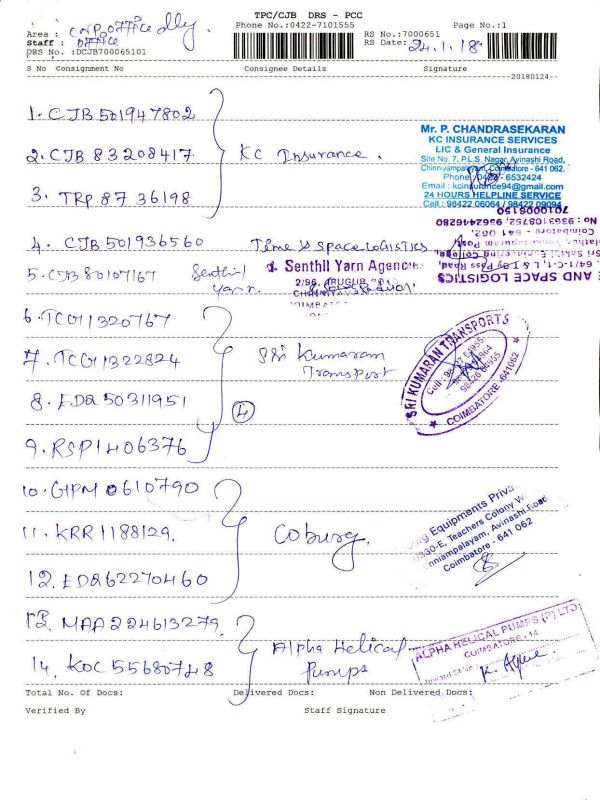 TPC/CJB DRS - PCC
Phone No.:0422-7101555
Page No.:1
Area : CNP office dlly
Staff : office
DRS No. :DCJB700065101
RS No.:7000651
RS Date: 24.1.18
S No Consignment No Consignee Details Signature
20180124
1. CJB 501947802
2. CJB 83208417 KC Insurance.
3. TRP 8736198
Mr. P. CHANDRASEKARAN
KC INSURANCE SERVICES
LIC & General Insurance
Site No. 7, P.L.S. Nagar, Avinashi Road,
Chinniyampalayam, Coimbatore - 641 062.
Phone: 0422 - 6532424
Email : kcinsurance94@gmail.com
24 HOURS HELPLINE SERVICE
Cell : 98422 06064 / 98422 09094
4. CJB 501936560 Time & Space Logistics
AND SPACE LOGISTICS
5. CJB 80107167 Senthil yarn.
Senthil Yarn Agencies
6. TCO11320767
7. TCO11322824 Sri Kumaran Transport
8. EDQ 50311951
④
9. RSP1406376
SRI KUMARAN TRANSPORTS
COIMBATORE-641062
10. GIPM 0610790
11. KRR 1188129. Coburg.
12. EDQ62270460
Equipments Priva
330-E, Teachers Colony
nniampalayam, Avinashi Road
Coimbatore - 641 062
13. MAA 224613279.
14. KOC 55680748 Alpha Helical Pumps
ALPHA HELICAL PUMPS (P) LTD
COIMBATORE-14
Total No. Of Docs: Delivered Docs: Non Delivered Docs:
Verified By Staff Signature